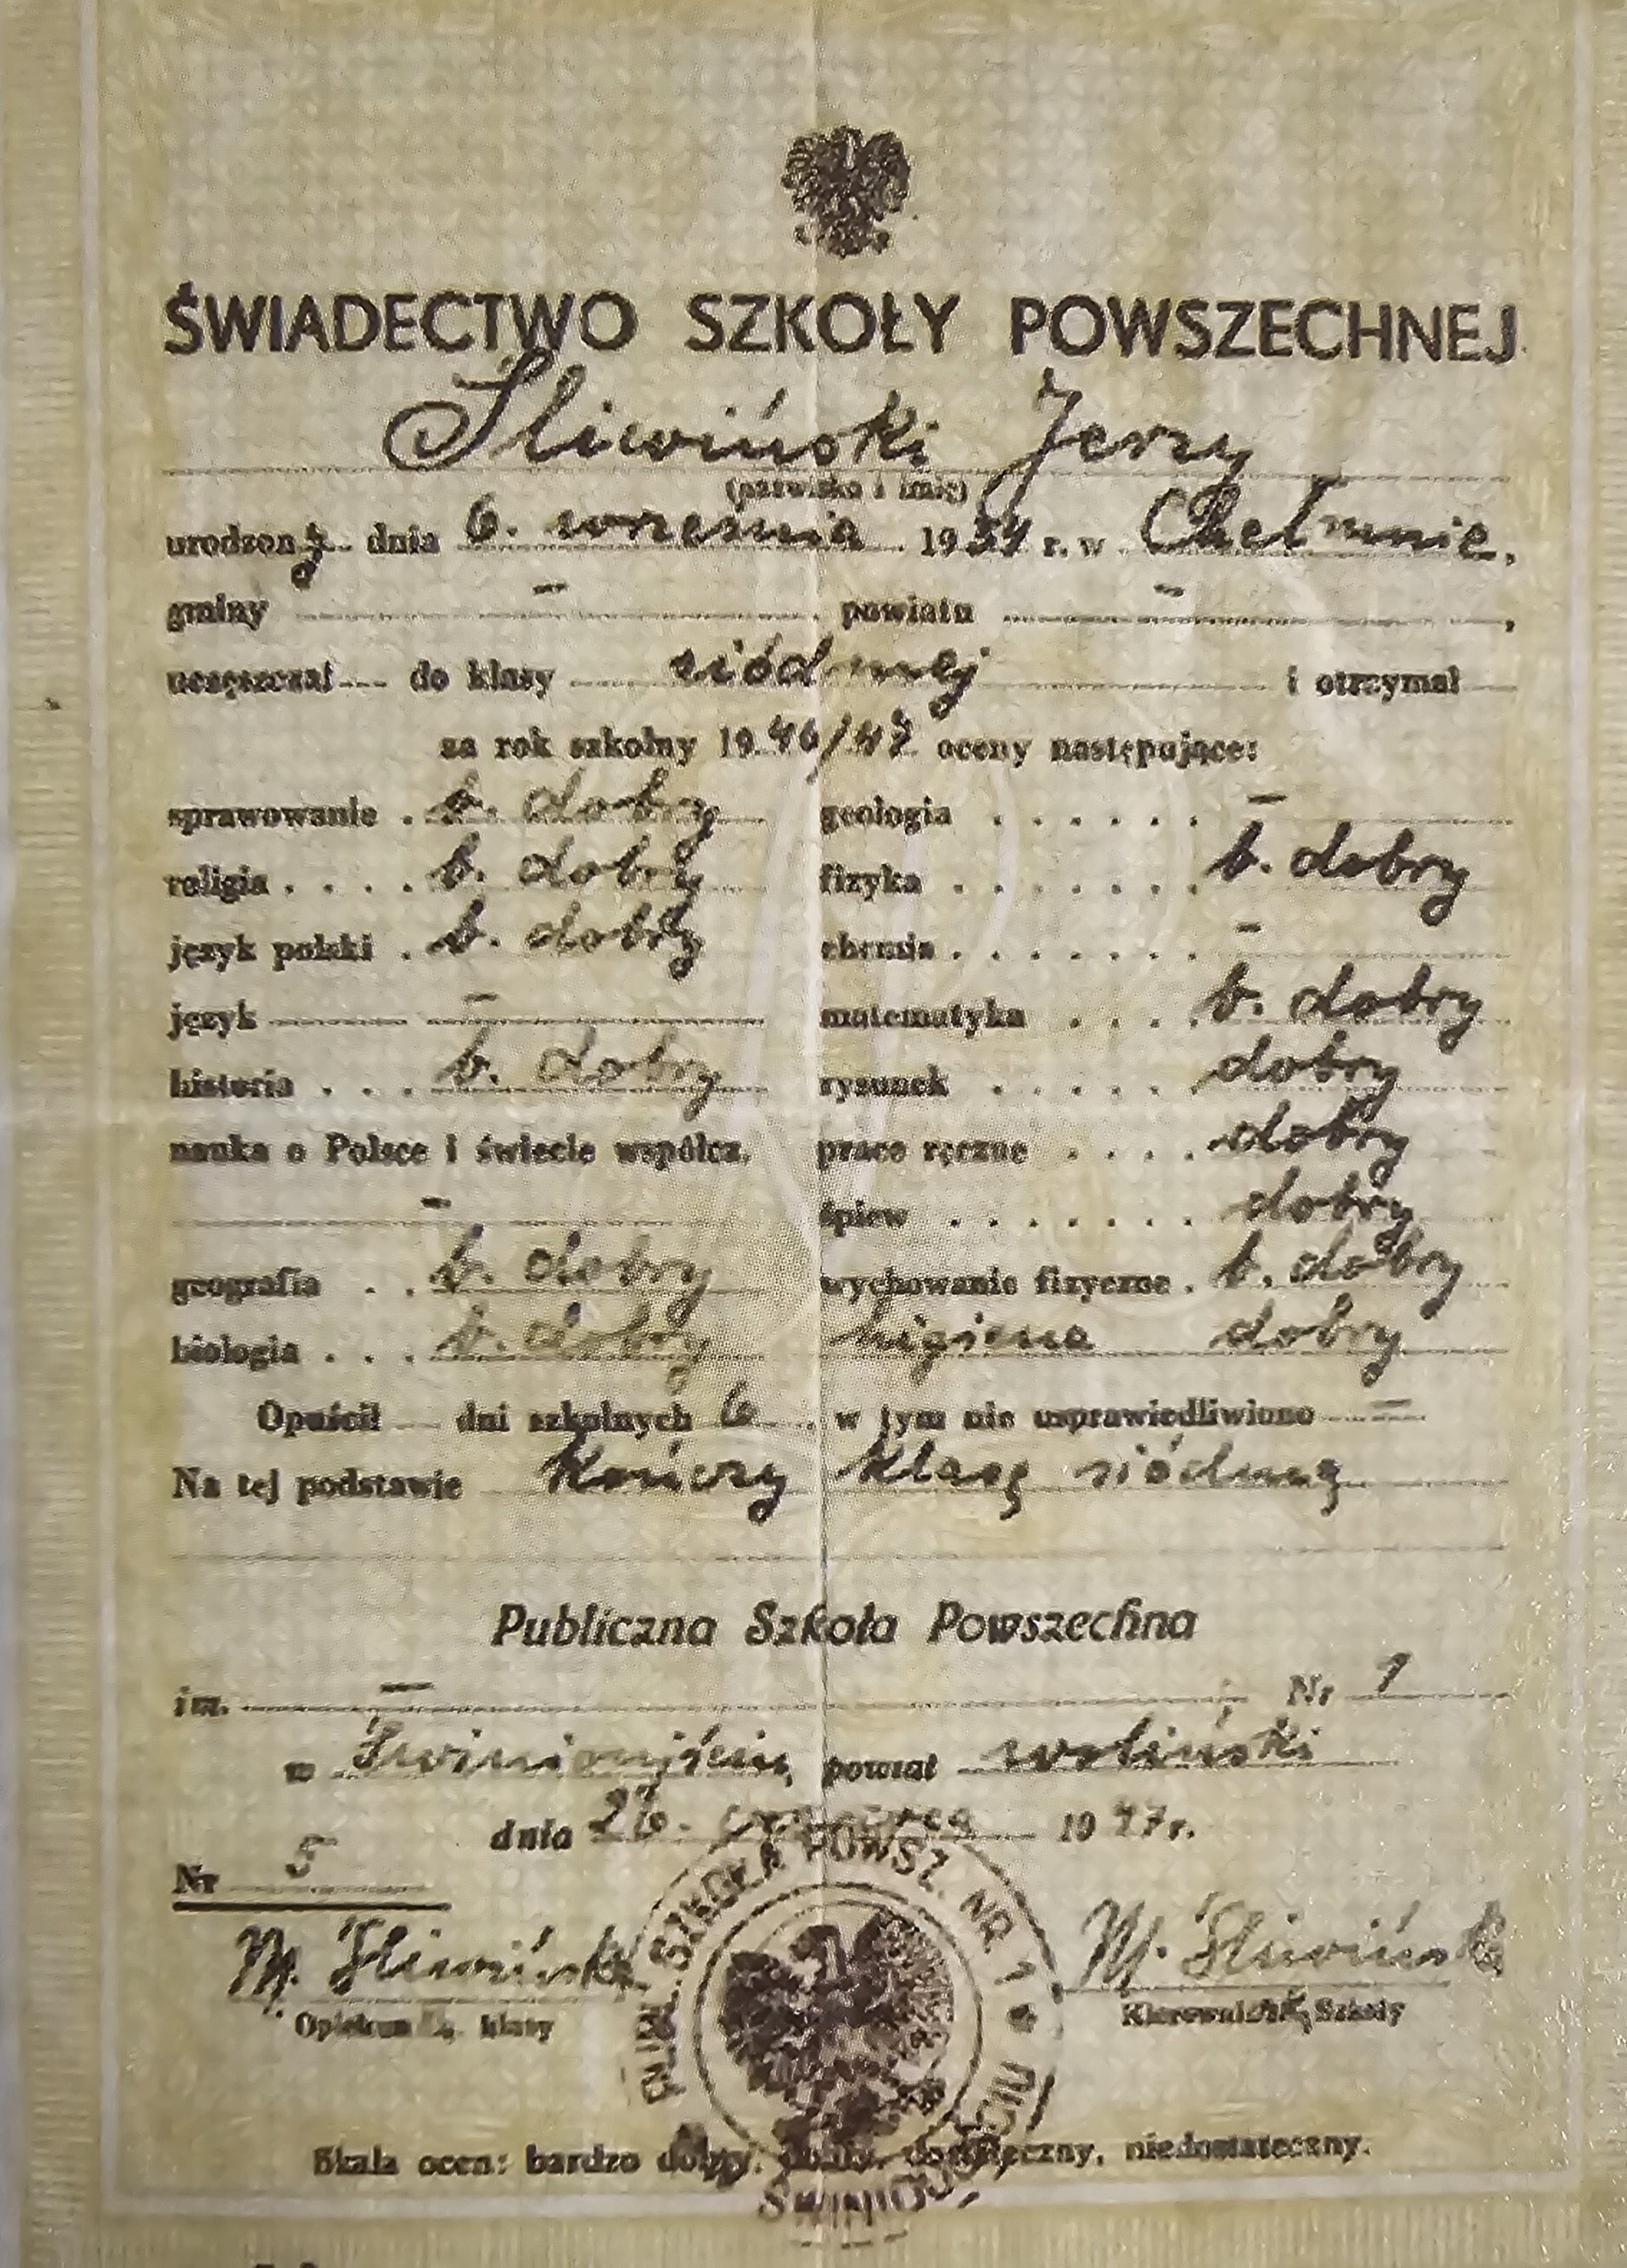 ŚWIADECTWO SZKOŁY POWSZECHNEJ
Śliwiński Jerzy
(nazwisko i imię)
urodzony dnia 6. września 1934 r. w Chełmnie,
gminy – powiatu –,
uczęszczał do klasy siódmej i otrzymał
za rok szkolny 1946/47 oceny następujące:
sprawowanie . b. dobry
religia . . . . b. dobry
język polski . b. dobry
język –
historia . . . b. dobry
nauka o Polsce i świecie współcz.
–
geografia . . b. dobry
biologia . . . b. dobry
geologia . . . . . . –
fizyka . . . . . . . b. dobry
chemia . . . . . . . –
matematyka . . . . b. dobry
rysunek . . . . . dobry
prace ręczne . . . . dobry
śpiew . . . . . . . dobry
wychowanie fizyczne . b. dobry
higiena dobry
Opuścił dni szkolnych 6 w tym nie usprawiedliwiono –
Na tej podstawie kończy klasę siódmą
Publiczna Szkoła Powszechna
im. – Nr 1
w Świnioujściu, powiat woliński
dnia 26. czerwca 1947 r.
Nr 5
M. Śliwińska M. Śliwińska
Opiekun klasy Kierownik Szkoły
PUBL. SZKOŁA POWSZ. NR 1
Skala ocen: bardzo dobry, dobry, dostateczny, niedostateczny.